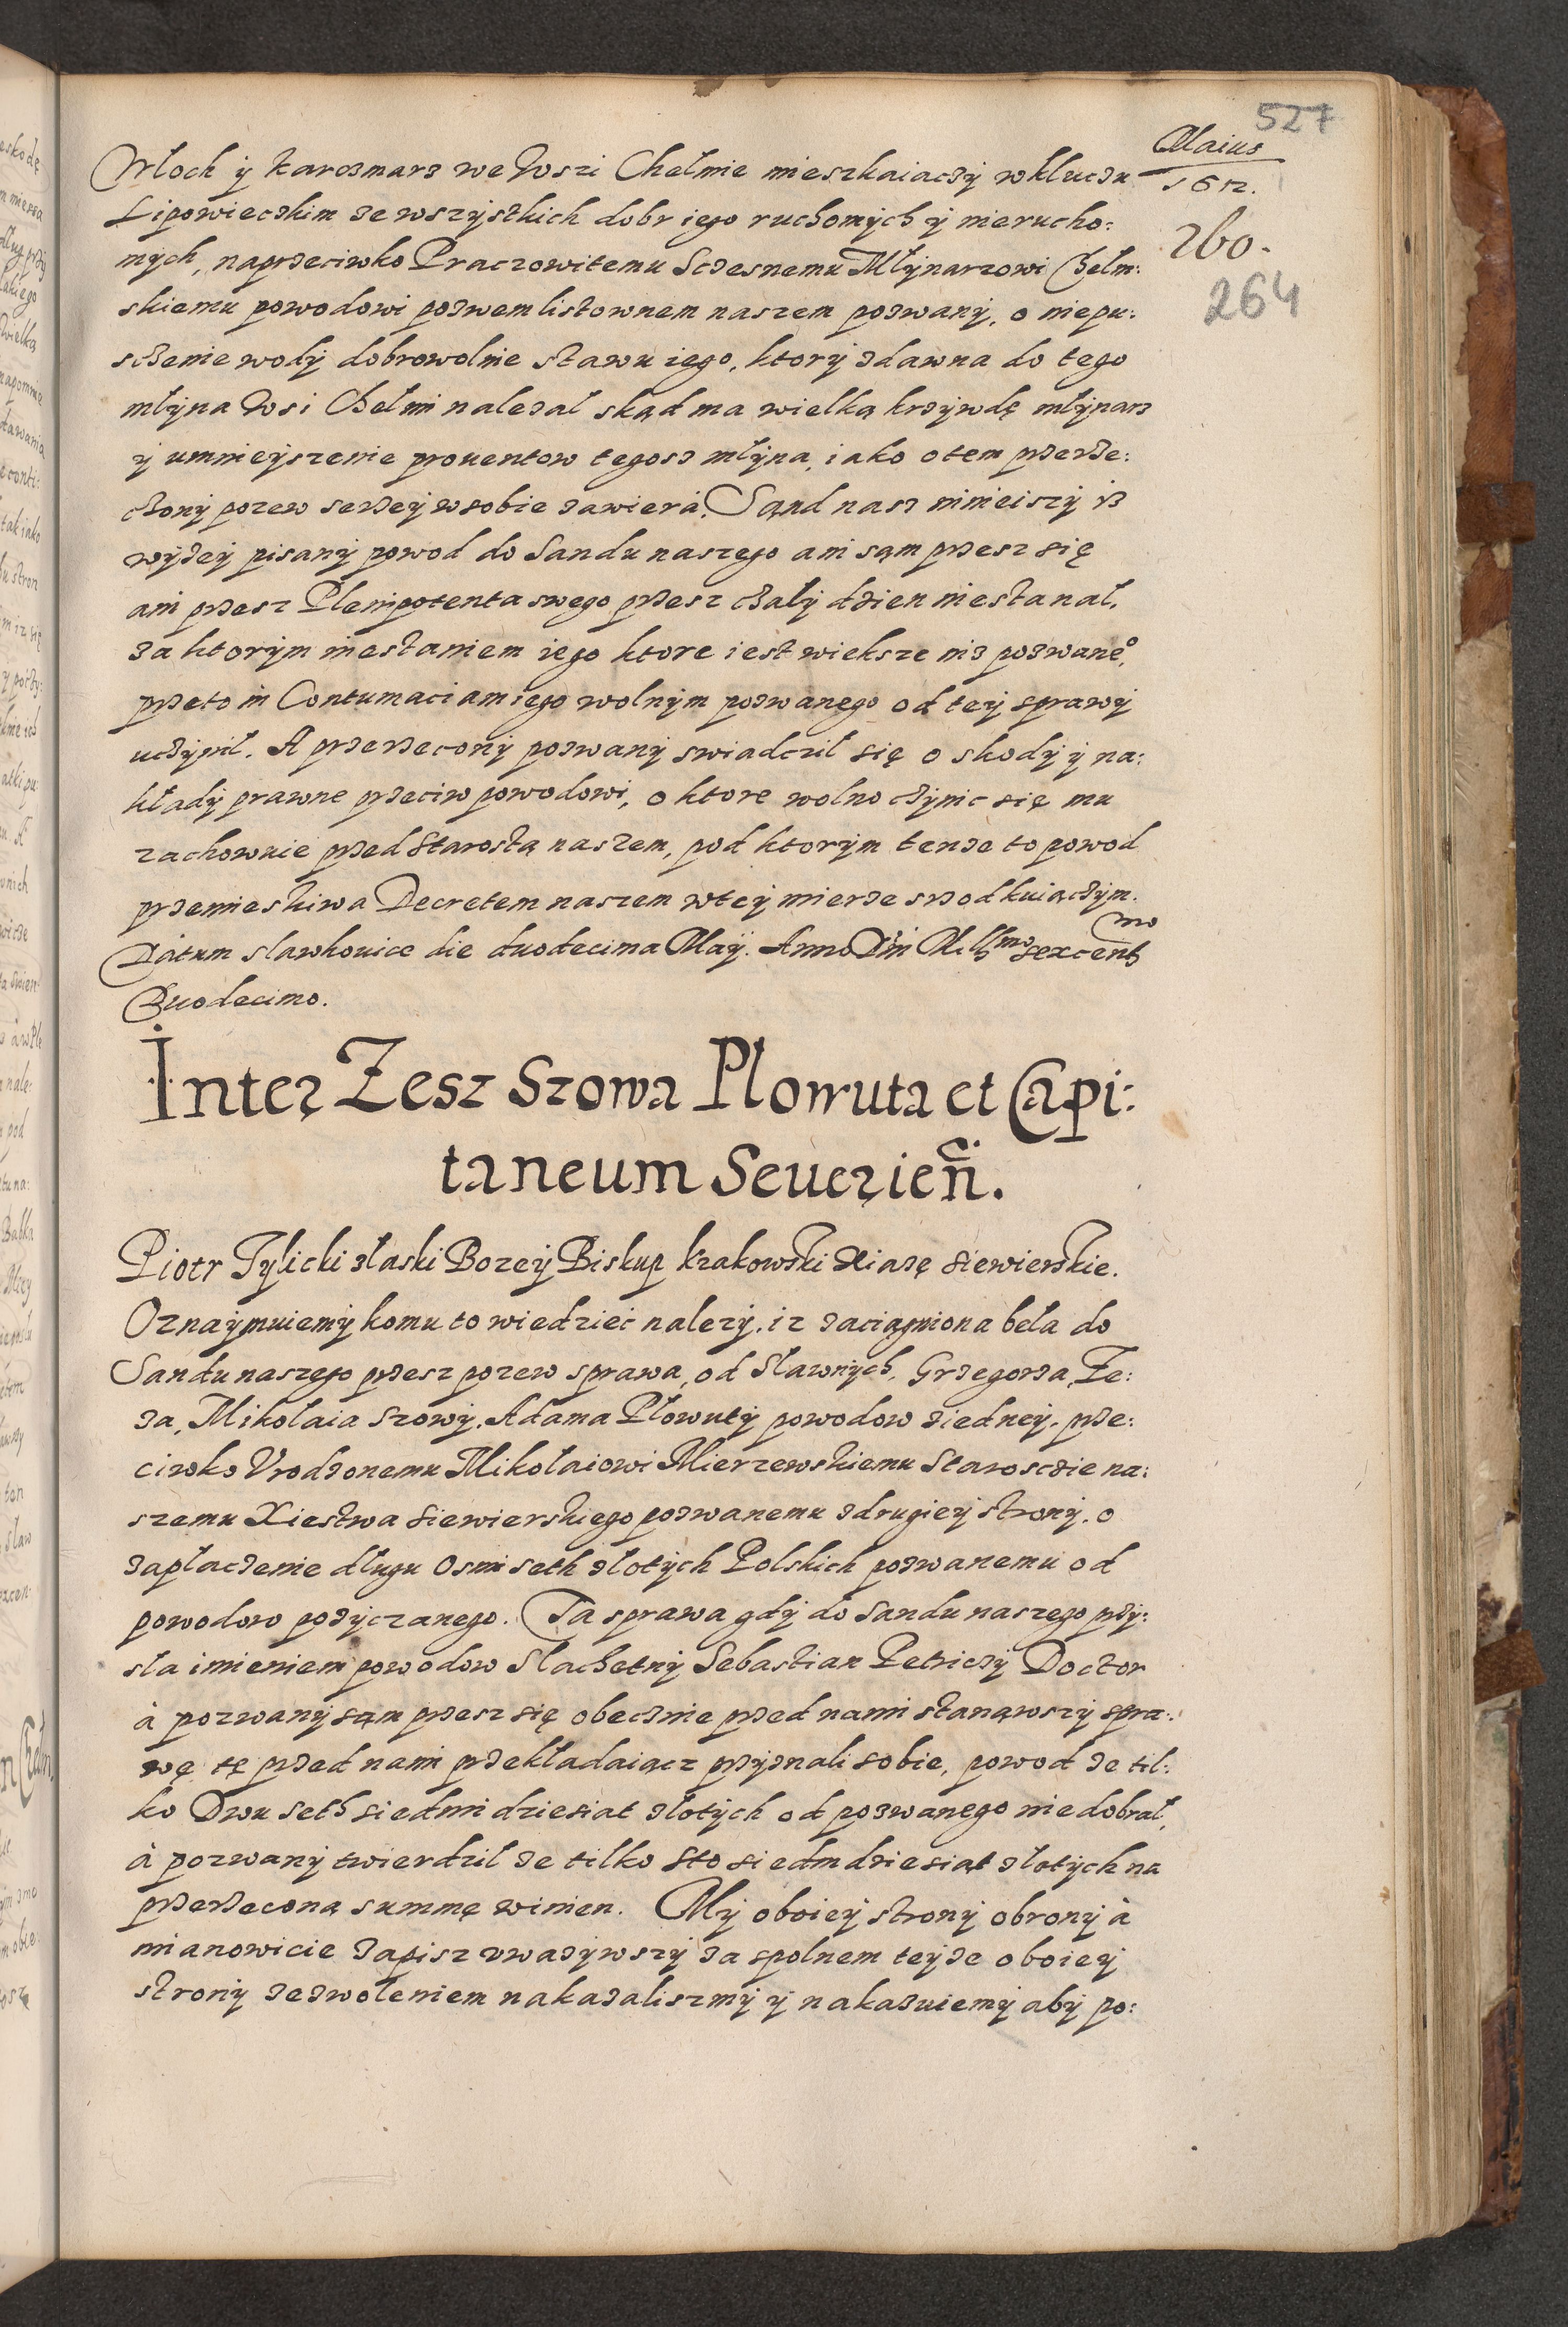 527
Maius
1612.
260.
264
Włoch ÿ karczmarz we Wszi Chełmie mieszkaiaczÿ w kluczu
Lipowieczkim ze wszÿstkich dobr iego ruchomÿch ÿ nierucho:
mÿch, naprzeciwko Praczowitemu Sczesnemu Młÿnarzowi Chełm:
skiemu powodowi pozwem listownem naszem pozwanÿ, o niepu:
sczenie wodÿ dobrowolnie stawu iego, ktorÿ zdawna do tego
młÿna Wsi Chełmi nalezał skąd ma wielką krzÿwdę młÿnarz
ÿ umnieÿszenie prouentow tegosz młÿna, iako o tem przerze:
czonÿ pozew serzeÿ w sobie zawiera. Sąnd nasz ninieiszÿ isz
wÿzeÿ pisanÿ powod do Sandu naszego ani sąm przesz się
ani przesz Plenipotenta swego przesz czałÿ dzien niestanał,
za ktorÿm niestaniem iego ktore iest wieksze nisz pozwane°,
przeto in Contumaciam iego wolnÿm pozwanego od teÿ sprawÿ
uczÿnił. A przerzeconÿ pozwanÿ swiadczil się o skodÿ ÿ na:
kładÿ prawne przeciw powodowi, o ktore wolno czÿnic się mu
zachowuie przed Starostą naszem, pod ktorÿm tenze to powod
przemieskiwa Decretem naszem w teÿ mierze srzodkuiączÿm.
Datum slawkouice die duodecima Maÿ. Anno Dni Mill̃mo sexcentmo
Duodecimo.
Inter Zesz Szowa Plowuta et Capi:
taneum Seuerień.
Piotr Tylicki złaski Bozeÿ Biskup krakowski Xiązę Siewierskie.
Oznaÿmuiemÿ komu to wiedziec nalezÿ. iz zaciągniona beła do
Sandu naszego przesz pozew sprawa, od Sławnÿch, Grzegorza, Ze:
za, Mikołaia Szowÿ, Adama Płowutÿ powodow ziedneÿ, prze:
ciwko Vrodzonemu Mikołaiowi Mierzewskiemu Starosczie na:
szemu Xiestwa Siewierskiego pozwanemu zdrugieÿ stronÿ, o
zapłaczenie długu Osmi seth złotÿch Polskich pozwanemu od
powodow pozÿczanego. Ta sprawa gdÿ do Sandu naszego przÿ:
sła imieniem powodow Slachetnÿ Sebastian Petriczÿ Doctor
à pozwanÿ sąm przesz się obecznie przed nami stanąwszÿ spra:
wę tę przed nami przekładaiącz przÿznali sobie, powod ze til:
ko Dwu seth siedmidziesiat złotÿch od pozwanego niedobrał,
à pozwanÿ twierdził ze tilko Sto siedmdziesiąt złotÿch na
przerzeconą summę winien. Mÿ oboieÿ stronÿ obronÿ à
mianowicie Zapisz vwazÿwszÿ za spolnem teÿze oboieÿ
stronÿ zezwoleniem nakazaliszmÿ ÿ nakazuiemÿ abÿ po: